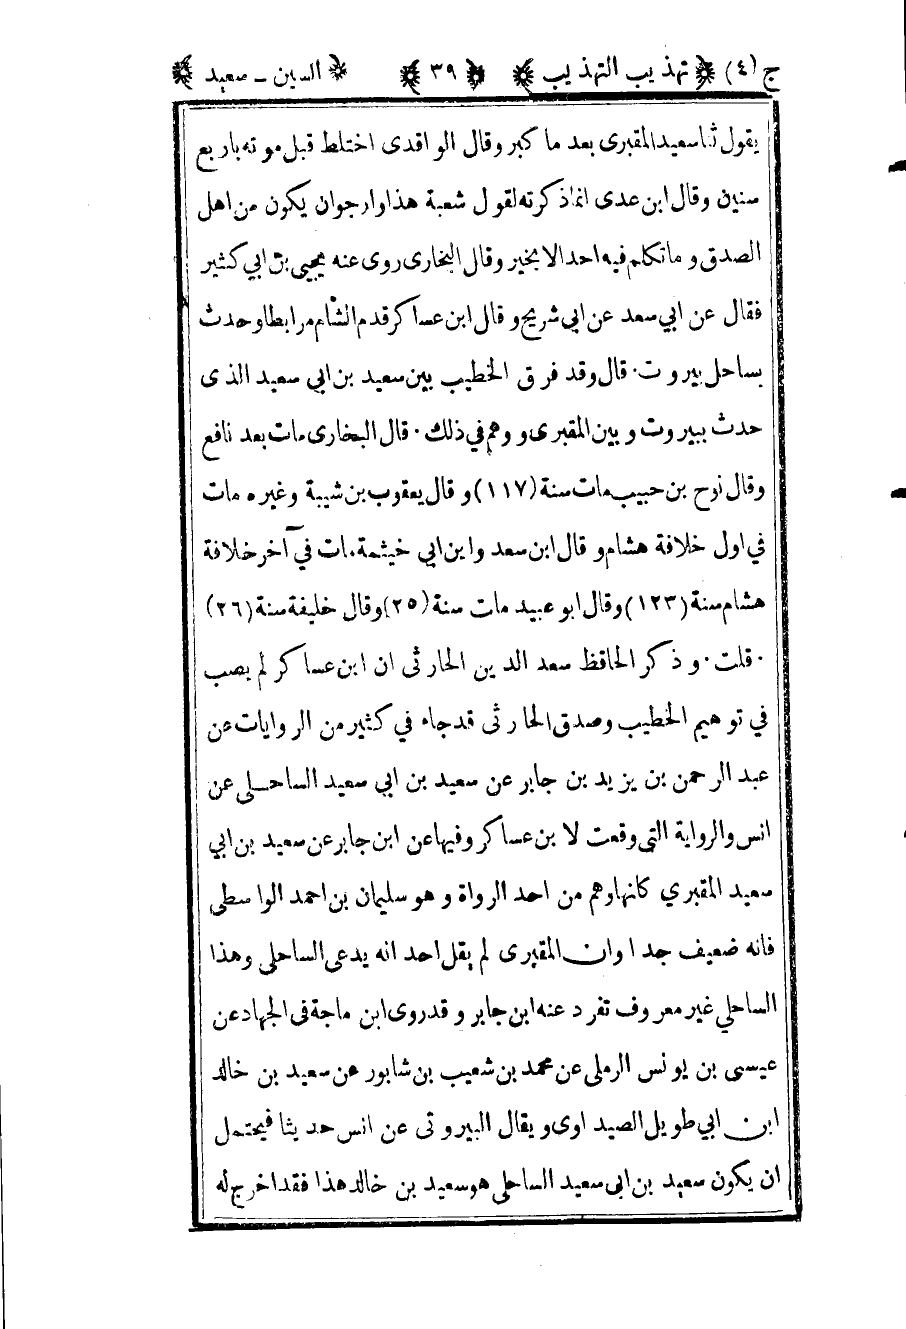 ج (٤) تهذيب التهذيب ٣٩ السين - سعيد
يقول ثنا سعيد المقبرى بعد ما كبر وقال الواقدى اختلط قبل موته باربع
سنين وقال ابن عدى انما ذكرته لقول شعبة هذا وارجو ان يكون من اهل
الصدق وما تكلم فيه احد الا بخير وقال البخارى روى عنه يحيى بن ابي كثير
فقال عن ابي سعد عن ابى شريح وقال ابن عساكر قدم الشأم مرابطا وحدث
بساحل بيروت ٠ قال وقد فرق الخطيب بين سعيد بن ابي سعيد الذى
حدث ببيروت وبين المقبرى ووهم في ذلك ٠ قال البخارى مات بعد نافع
وقال نوح بن حبيب مات سنة (١١٧) وقال يعقوب بن شيبة وغيره مات
في اول خلافة هشام وقال ابن سعد وابن ابي خيثمة مات في آخر خلافة
هشام سنة (١٢٣) وقال ابو عبيد مات سنة (٢٥) وقال خليفة سنة (٢٦)
٠ قلت ٠ وذكر الحافظ سعد الدين الحارثى ان ابن عساكر لم يصب
في توهيم الخطيب وصدق الحارثى قد جاء في كثير من الروايات عن
عبد الرحمن بن يزيد بن جابر عن سعيد بن ابي سعيد الساحلى عن
انس والرواية التى وقعت لا بن عساكر وفيها عن ابن جابر عن سعيد بن ابي
سعيد المقبري كانها وهم من احد الرواة وهو سليمان بن احمد الواسطى
فانه ضعيف جدا وان المقبرى لم يقل احد انه يدعى الساحلى وهذا
الساحلي غير معروف تفرد عنه ابن جابر وقد روى ابن ماجة فى الجهاد عن
عيسى بن يونس الرملى عن محمد بن شعيب بن شابور عن سعيد بن خالد
ابن ابي طويل الصيداوى ويقال البيروتى عن انس حديثا فيحتمل
ان يكون سعيد بن ابى سعيد الساحلى هو سعيد بن خالد هذا فقد اخرج له